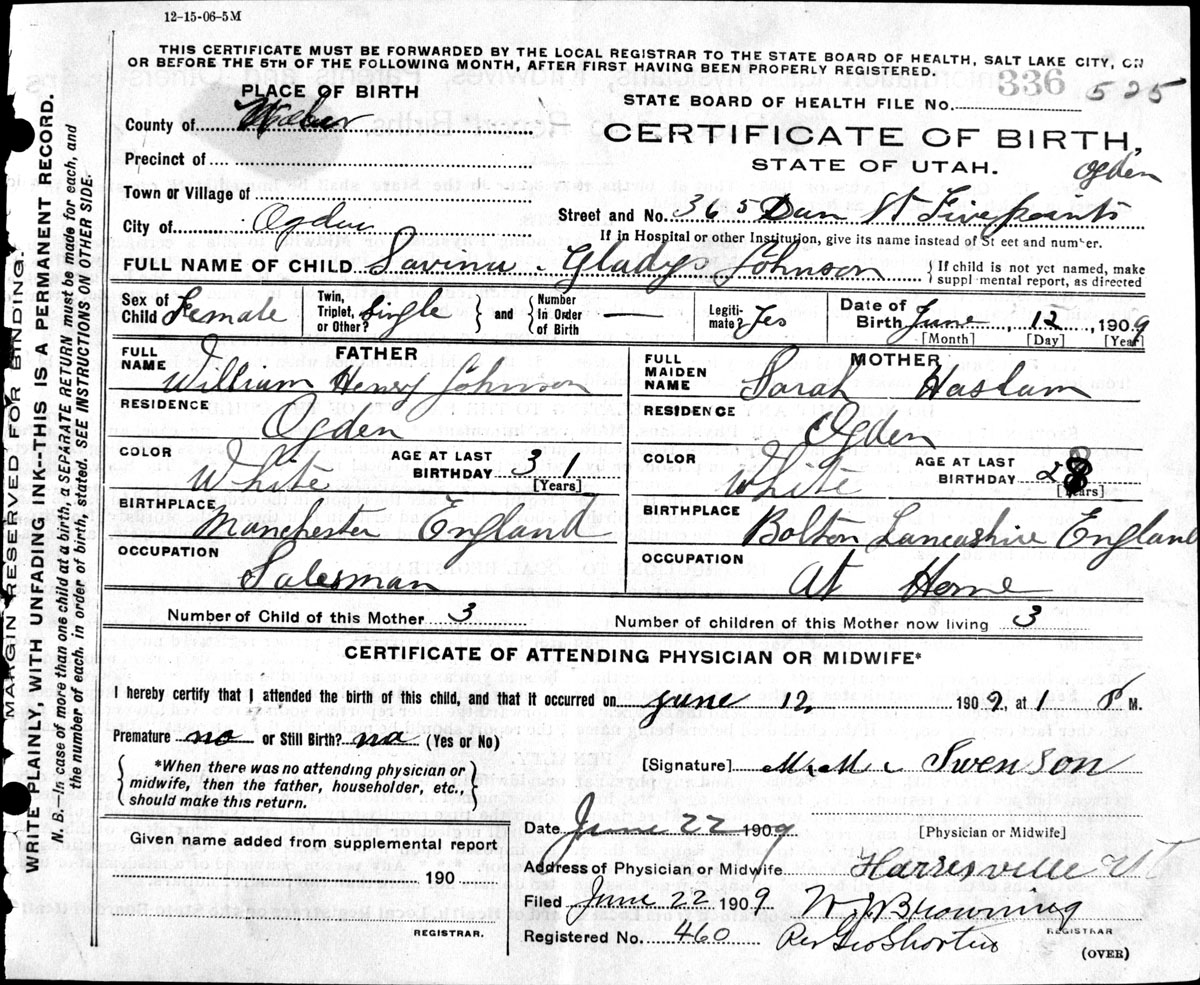 12-15-06-5M
THIS CERTIFICATE MUST BE FORWARDED BY THE LOCAL REGISTRAR TO THE STATE BOARD OF HEALTH, SALT LAKE CITY, ON
OR BEFORE THE 5TH OF THE FOLLOWING MONTH, AFTER FIRST HAVING BEEN PROPERLY REGISTERED.
MARGIN RESERVED FOR BINDING.
WRITE PLAINLY, WITH UNFADING INK--THIS IS A PERMANENT RECORD.
N. B.—In case of more than one child at a birth, a SEPARATE RETURN must be made for each, and
the number of each, in order of birth, stated. SEE INSTRUCTIONS ON OTHER SIDE.
PLACE OF BIRTH
STATE BOARD OF HEALTH FILE No. 336 525
County of Weber
CERTIFICATE OF BIRTH,
STATE OF UTAH.
Ogden
Precinct of
Town or Village of
City of Ogden
Street and No. 365 Dan St Fivepoints
If in Hospital or other Institution, give its name instead of St eet and number.
FULL NAME OF CHILD Savina Gladys Johnson
If child is not yet named, make
suppl mental report, as directed
Sex of Child Female
Twin, Triplet, or Other? Single and Number In Order of Birth —
Legiti-mate? Yes
Date of Birth June 12 1909
[Month] [Day] [Year]
FATHER
FULL NAME William Henry Johnson
RESIDENCE
Ogden
COLOR White AGE AT LAST BIRTHDAY 31 [Years]
BIRTHPLACE
Manchester England
OCCUPATION
Salesman
MOTHER
FULL MAIDEN NAME Sarah Haslam
RESIDENCE
Ogden
COLOR White AGE AT LAST BIRTHDAY 28 [Years]
BIRTHPLACE
Bolton Lancashire England
OCCUPATION
At Home
Number of Child of this Mother 3
Number of children of this Mother now living 3
CERTIFICATE OF ATTENDING PHYSICIAN OR MIDWIFE*
I hereby certify that I attended the birth of this child, and that it occurred on June 12, 1909, at 1 P M.
Premature no or Still Birth? no (Yes or No)
*When there was no attending physician or
midwife, then the father, householder, etc.,
should make this return.
[Signature] Swenson
[Physician or Midwife]
Date June 22 1909
Given name added from supplemental report
190
REGISTRAR.
Address of Physician or Midwife Harresville UT
Filed June 22 1909 Browning
REGISTRAR
Registered No. 460
(OVER)